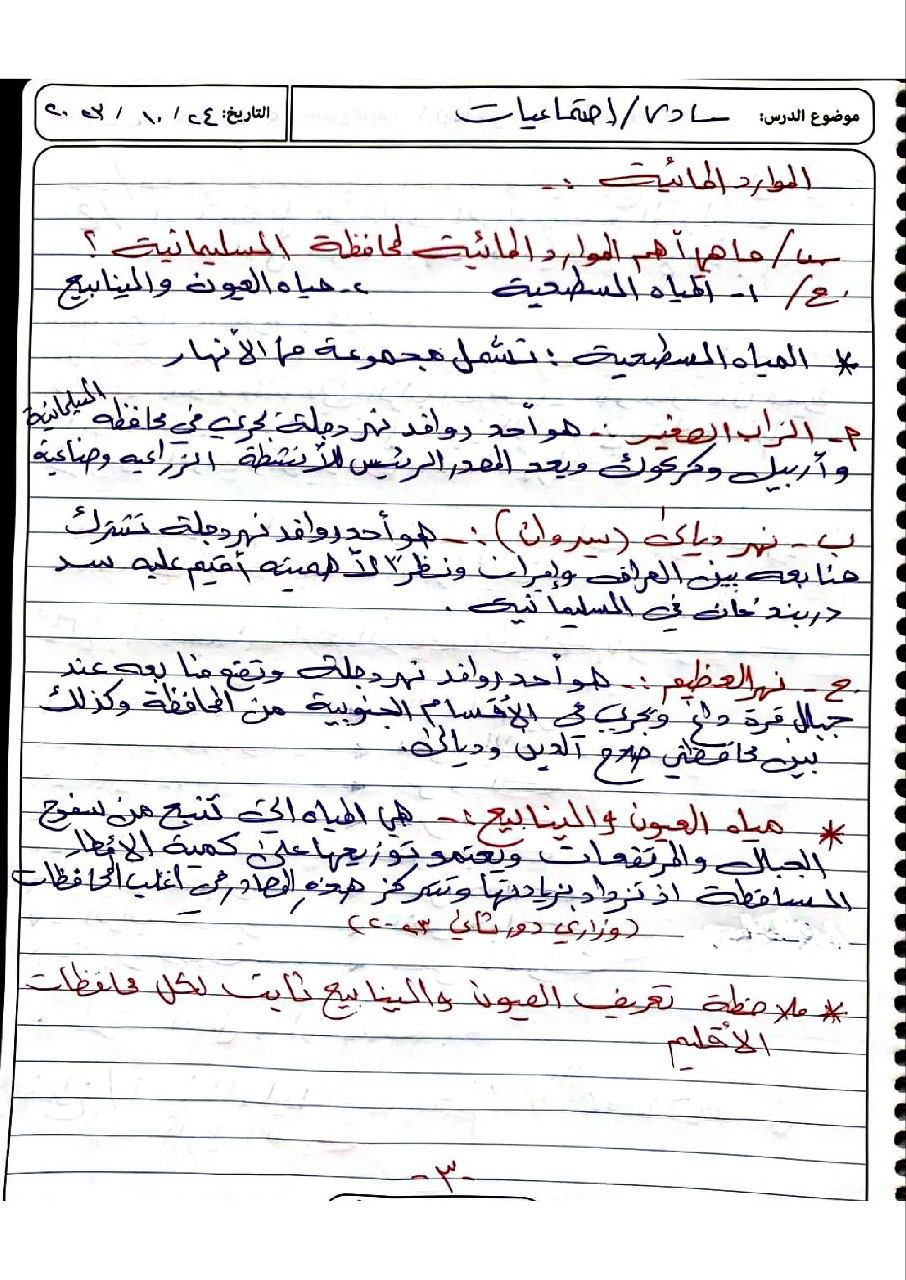 موضوع الدرس: سادس/إجتماعيات
التاريخ: ٢٤ / ١٠ / ٢٠٢٣
الموارد المائية :-
س/ ما هي أهم الموارد المائية لمحافظة السليمانية ؟
ج/ ١- المياه السطحية ٢- مياه العيون والينابيع
* المياه السطحية : تشمل مجموعة من الأنهار
٢- الزاب الصغير :- هو أحد روافد نهر دجلة يجري في محافظة السليمانية
وأربيل وكركوك ويعد المصدر الرئيس للأنشطة الزراعيه وصناعية
ب- نهر ديالى (سيروان) :- هو أحد روافد نهر دجلة تشترك
منابعه بين العراق وإيران ونظرًا لأهميته أقيم عليه سد
دربندخان في السليمانية .
ج- نهر العظيم :- هو أحد روافد نهر دجلة وتقع منابعه عند
جبال قرة داغ ويجري في الأقسام الجنوبية من المحافظة وكذلك
بين محافظتي صلاح الدين وديالى.
* مياه العيون والينابيع :- هي المياه التي تنبع من سفوح
الجبال والمرتفعات ويعتمد توزيعها على كمية الأمطار
الساقطة اذ تزداد بزيادتها وتتركز هذه المصادر في أغلب المحافظات
(وزاري دور ثاني ٢٠٢٣)
* ملاحظة تعريف العيون والينابيع ثابت لكل محافظات
الأقليم
-٣-